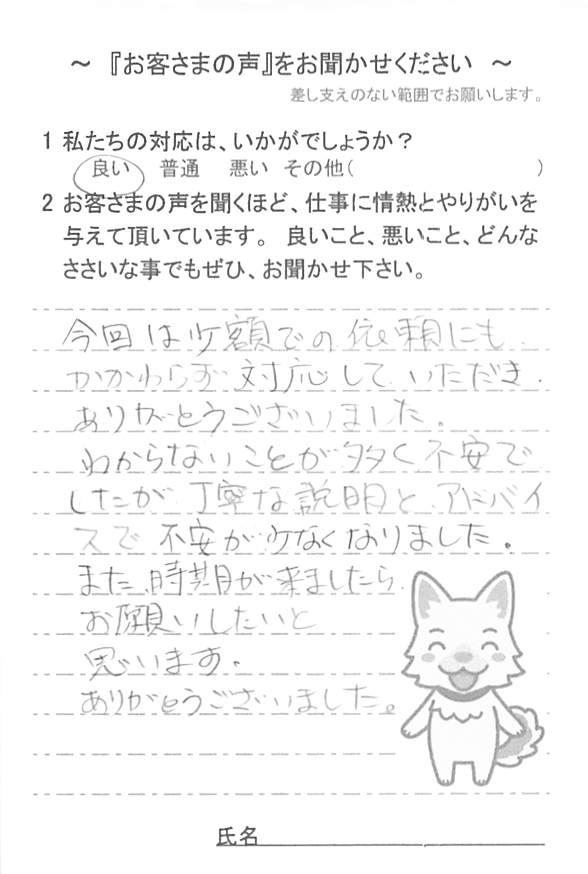 ～ 『お客さまの声』をお聞かせください ～
差し支えのない範囲でお願いします。
1 私たちの対応は、いかがでしょうか？
良い 普通 悪い その他( )
2 お客さまの声を聞くほど、仕事に情熱とやりがいを
与えて頂いています。 良いこと、悪いこと、どんな
ささいな事でもぜひ、お聞かせ下さい。
今回は少額での依頼にも
かかわらず対応していただき、
ありがとうございました。
わからないことが多く不安で
したが丁寧な説明と、アドバイ
スで不安が少なくなりました。
また、時期が来ましたら
お願いしたいと
思います。
ありがとうございました。
氏名